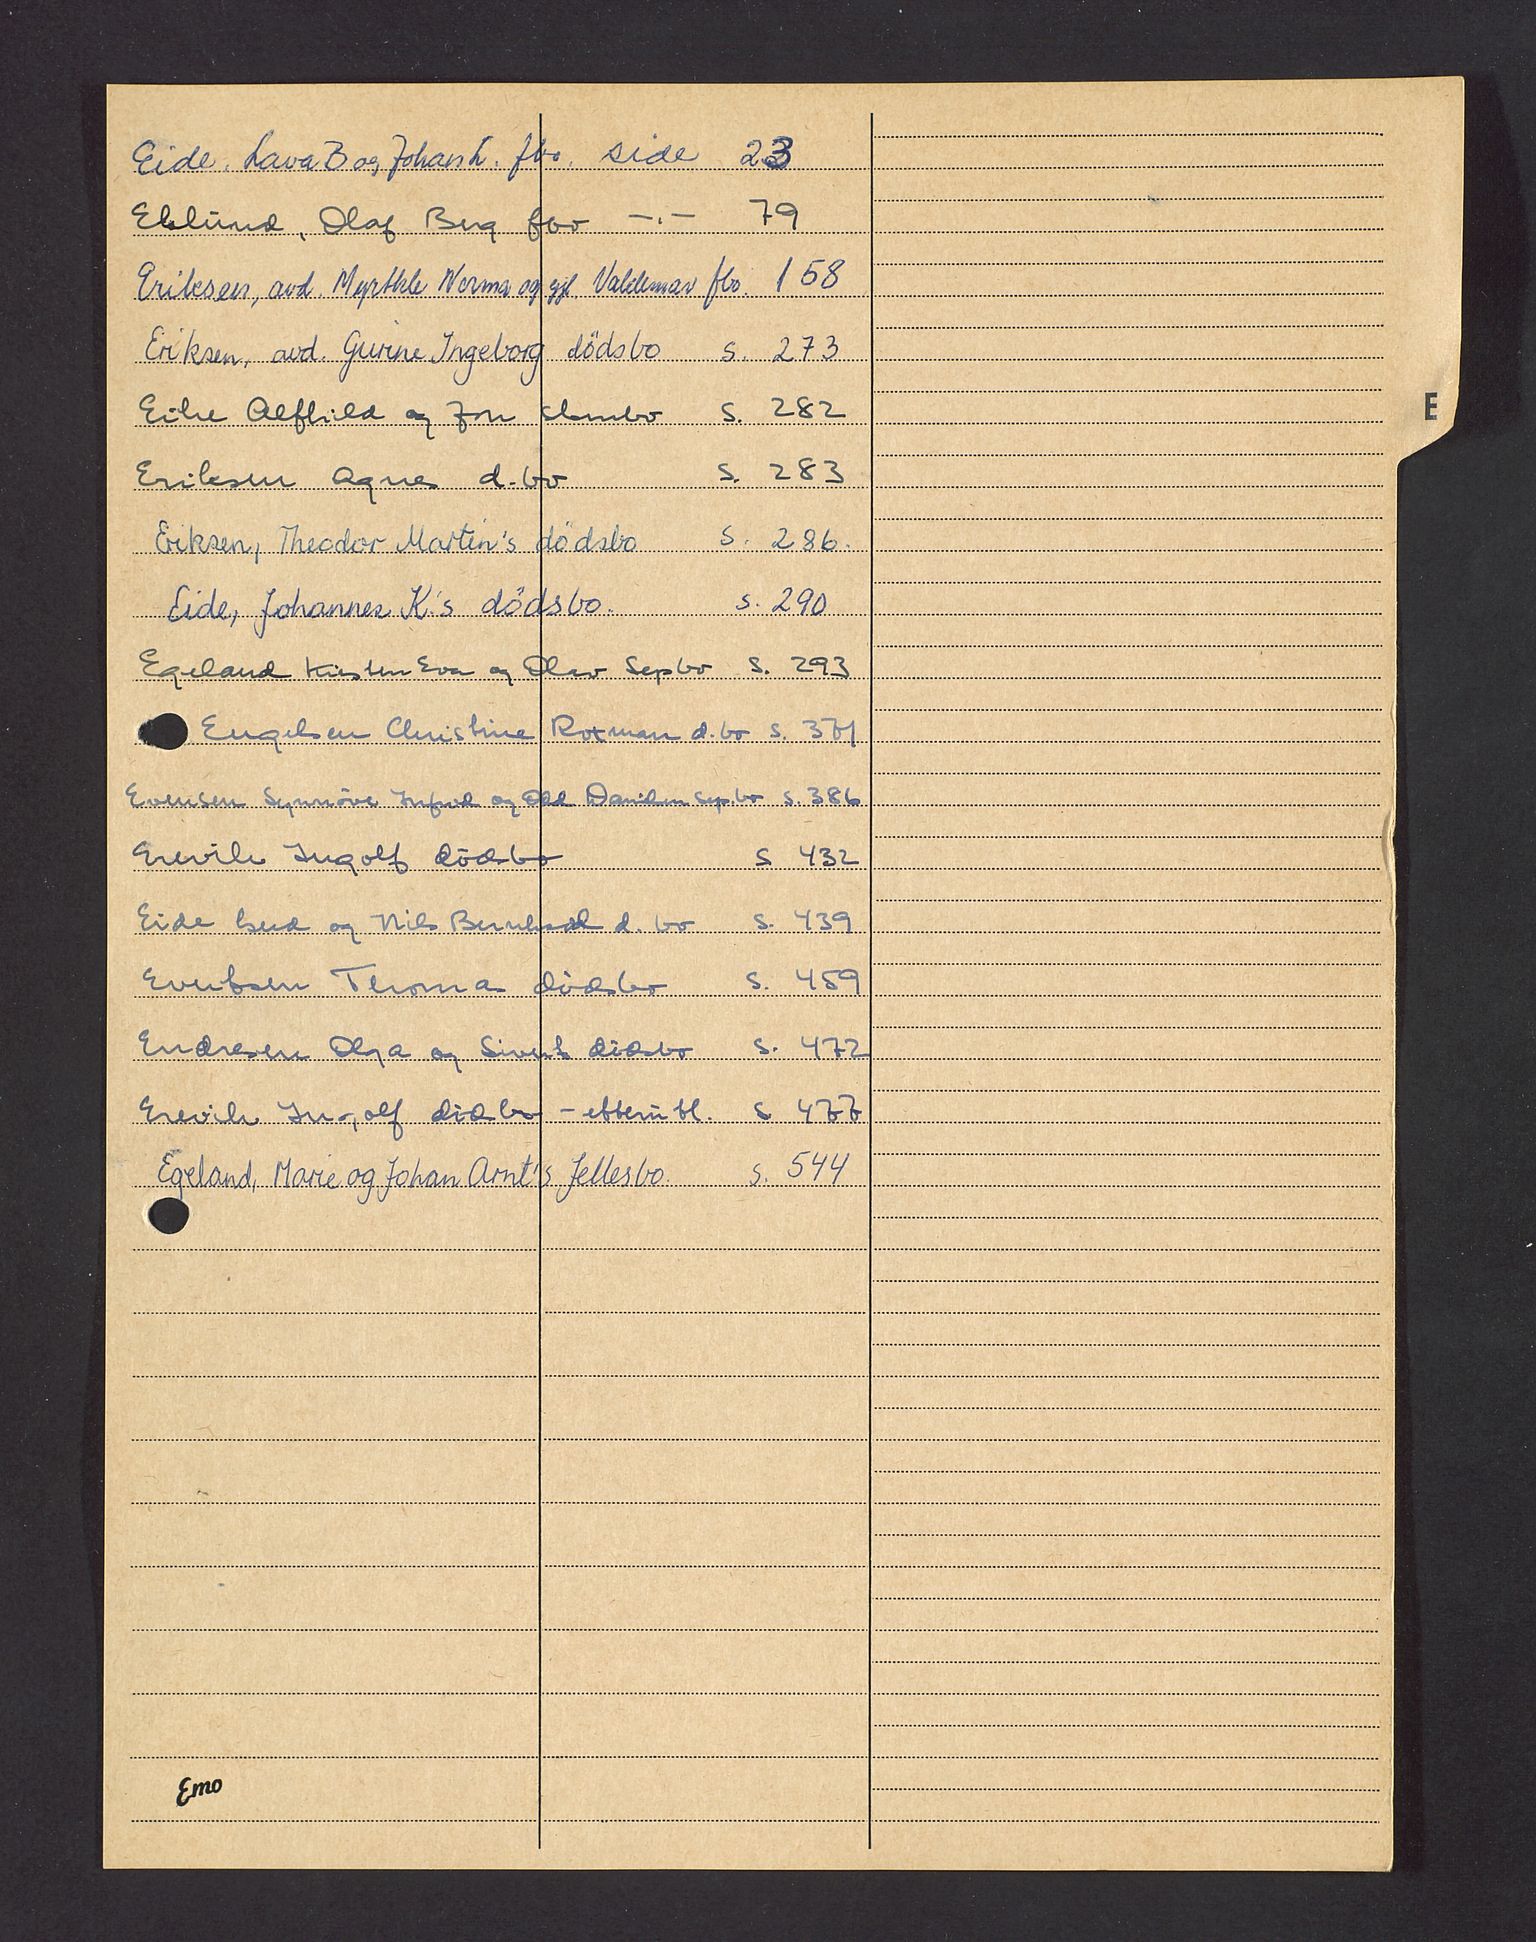 Eide, Lava B og Johan L. fbo. side 23
Eklund, Olaf Berg fbo -.- 79
Eriksen, avd. Myrthle Norma og gjl. Valdemar fbo. 158
Eriksen, avd. Gurine Ingeborg dödsbo s. 273
Eike Alfhild og Jon s. 282
Eriksen Agnes d.bo s. 283
Eriksen, Theodor Martin's dödsbo s. 286.
Eide, Johannes K's dödsbo. s. 290
Egeland Kirsten Eva og Olav Sepbo s. 293
Engelsen Christine Rotman d.bo s. 371
Evensen Synnöve og Odd sep.bo s. 386
Erevik Ingolf dödsbo s 432
Eide Gud og Nils Bernhard d. bo s. 439
Evertsen Thomas dödsbo s. 459
Endresen Olga og Sivert dödsbo s. 472
Erevik Ingolf dödsbo - ettersutl. s 477
Egeland, Marie og Johan Arnt's fellesbo. s. 544
E
Emo